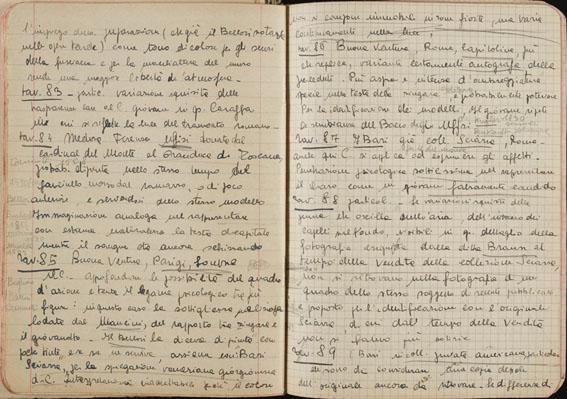 l'impiego della preparazione (e già il Bellori notava
nelle opere tarde) come tono di colore per gli scuri
della
rende una maggiore libertà di atmosfera.
tav. 83 - partic. variazione squisita delle
trasparenze
che vi si riflette la luce del tramonto romano
tav. 84 Medusa Firenze Uffizi donata dal
cardinal Del Monte al Granduca di Toscana,
probabil. dipinta nello stesso tempo del
fanciullo morso dal ramarro, o di poco
anteriore e servendosi dello stesso modello
Immaginazione analoga nel rappresentare
con estrema naturalezza la testa decapitata
mentre il sangue sta ancora schizzando
tav. 85 Buona Ventura, Parigi, Louvre
Il C. approfondisce le possibilità del quadro
d'azione e tenta il legame psicologico tra più
figure: in questo caso la sottigliezza
lodata dal Mancini, del rapporto tra zingara e
il giovanotto. Il Bellori la diceva dipinta con
poche tinte, e se ne serviva, assieme coi Bari
Sciarra, per la spiegazione veneziana giorgionesca
di C.
non si compone
continuamente nella luce.
tav. 86 Buona Ventura, Roma, Capitolina, più
che replica, variante certamente autografa della
precedente. Più aspra e intensa d'ombreggiature
specie nella testa della zingara e probabilmente posteriore
Per la identificazione dei modelli. Il giovane ripete
le sembianze del Bacco degli Uffizi
tav. 87 I Bari già coll. Sciarra, Roma
anche qui C. si applica ad esprimere gli affetti.
Penetrazione psicologica sottilissima nel rappresentare
il baro come il giovane falsamente candido
tav. 88 particol. - le variazioni squisite delle
piume che oscilla nell'aria dell'intonaco dei
capelli nel fondo, visibili in q. dettaglio della
fotografia eseguita dalla ditta Braun al
tempo della vendita della collezione Sciarra,
non si ritrovano nella fotografia d'un
quadro dello stesso soggetto di recente pubblicato
e proposto per l'identificazione con l'originale
Sciarra, di cui dal tempo della vendita
non si seppe più notizia
tav. 89 I Bari in coll. privata americana
da considerare una copia desunta
dell'originale ancora da ritrovare - le differenze di